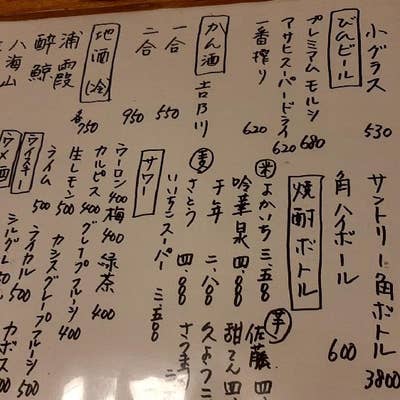 小グラス 530
びんビール
プレミアムモルツ 680
アサヒスーパードライ 620
一番搾り 620
かん酒
吉乃川
一合 550
二合 950
地酒(冷)
浦霞
酔鯨
八海山
各750
サントリー角ボトル 3800
角ハイボール 600
焼酎ボトル
米 よかいち 三、五〇〇
吟華泉 四、〇〇〇
千年 二、八〇〇
麦
さとう 四、〇〇〇
いいちこスーパー 三、五〇〇
芋
佐藤 四、
甜てん 四、
サワー
ウーロン 400 梅 400 緑茶 400
カルピス 400 グレープフルーツ 400
生レモン 500 カシスグレープフルーツ 400
ライム 500
ライチー
ライカル 500
ウメ酒
カボス